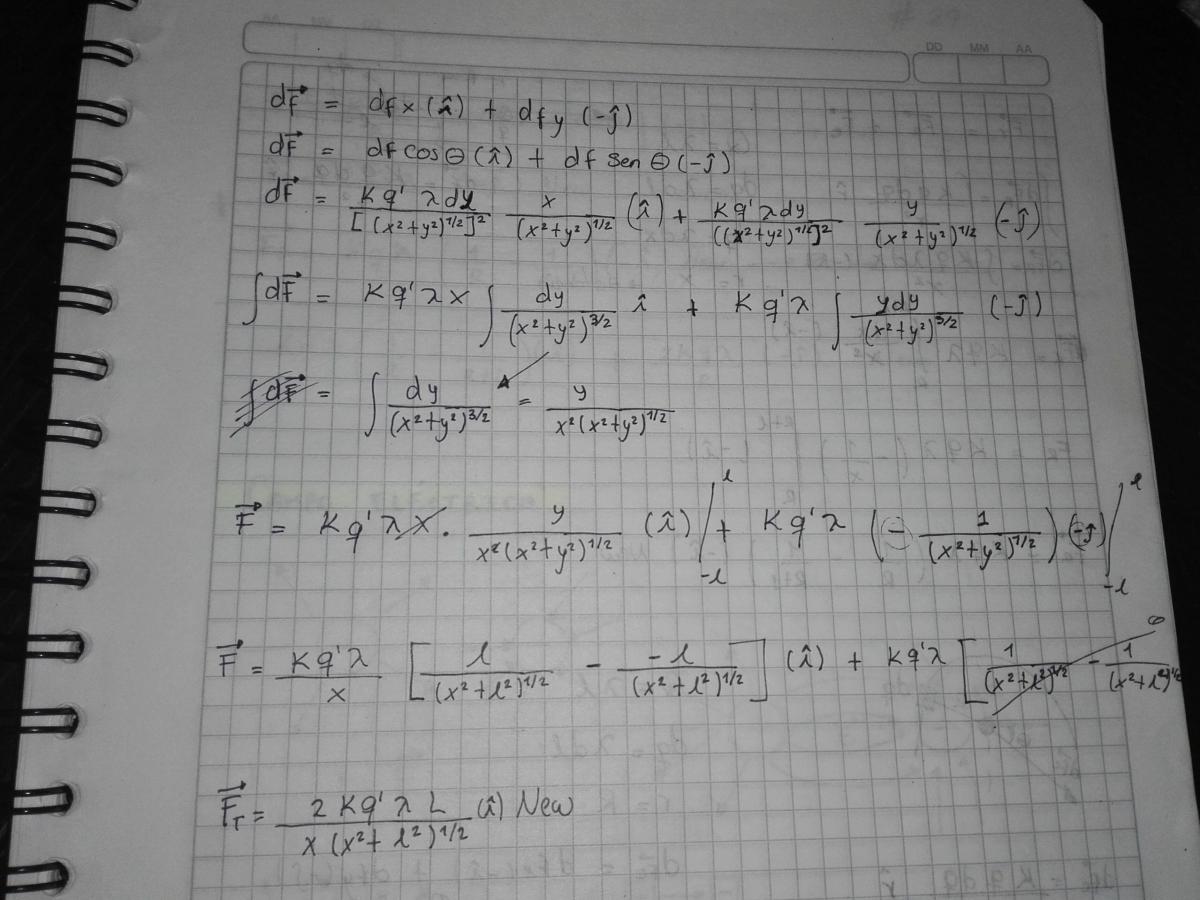 DD MM AA
dF⃗ = dfx (î) + dfy (-ĵ)
dF⃗ = df cos θ (î) + df sen θ (-ĵ)
dF⃗ = Kq'λdy/[(x²+y²)^1/2]² x/(x²+y²)^1/2 (î) + Kq'λdy/((x²+y²)^1/2]² y/(x²+y²)^1/2 (-ĵ)
∫dF⃗ = Kq'λx ∫ dy/(x²+y²)^3/2 î + Kq'λ ∫ ydy/(x²+y²)^3/2 (-ĵ)
∫dF⃗ = ∫ dy/(x²+y²)^3/2 = y/x²(x²+y²)^1/2
F⃗ = Kq'λx · y/x²(x²+y²)^1/2 (î) |_-l^l + Kq'λ (- 1/(x²+y²)^1/2) (-ĵ) |_-l^l
F⃗ = Kq'λ/x [l/(x²+l²)^1/2 - -l/(x²+l²)^1/2] (î) + Kq'λ [1/(x²+l²)^1/2 - 1/(x²+l²)^1/2
F⃗_T = 2Kq'λL/x(x²+l²)^1/2 (î) New